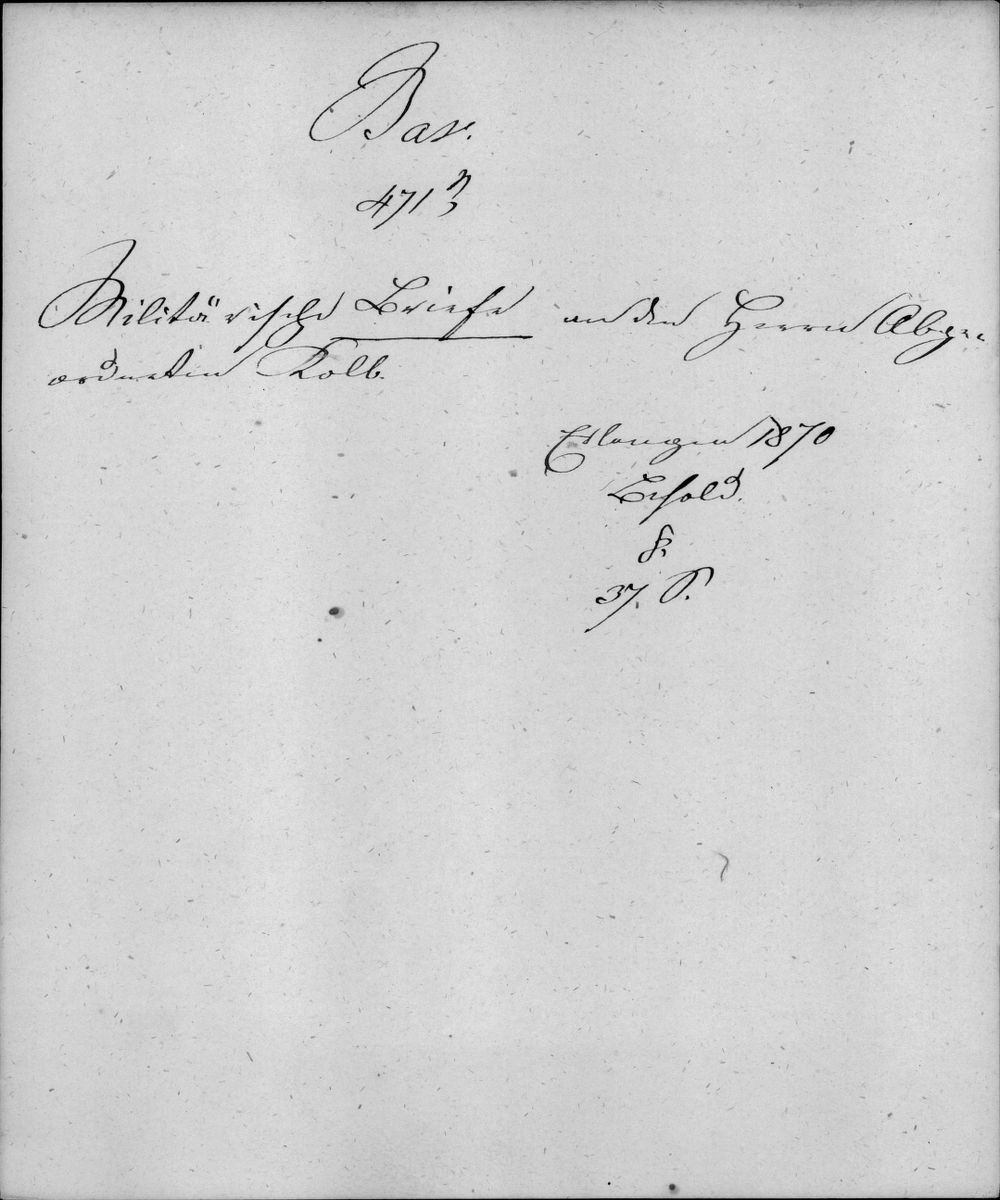 Bav.
471
Militärische Briefe an den Herrn Abge-
ordneten Kolb.
Erlangen 1870
Besold.
8.
37. S.